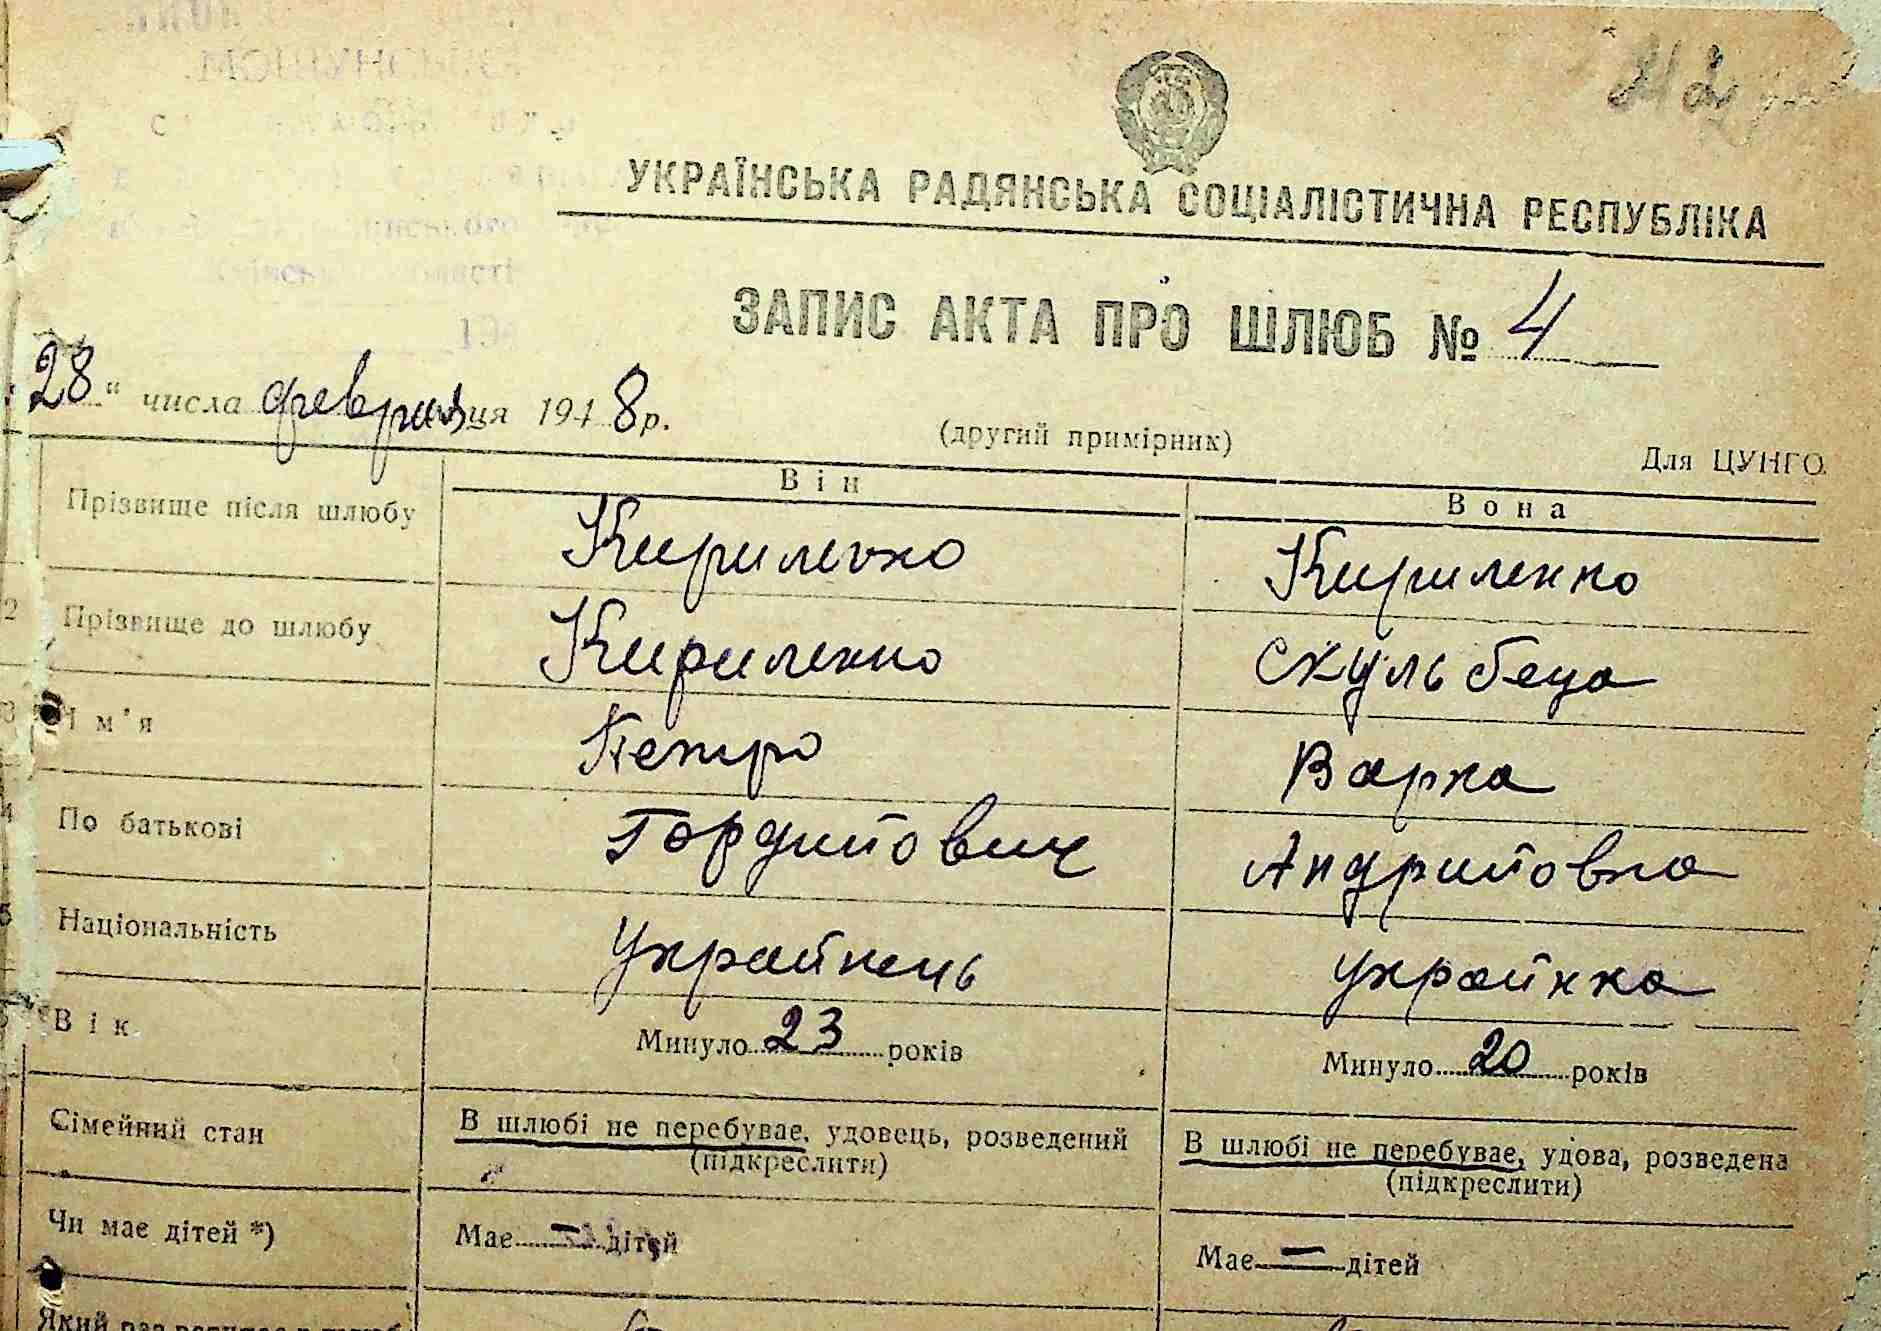 УКРАЇНСЬКА РАДЯНСЬКА СОЦІАЛІСТИЧНА РЕСПУБЛІКА
ЗАПИС АКТА ПРО ШЛЮБ № 4
28 " числа февраля ця 1948 р.
(другий примірник)
Для ЦУНГО.
Він
Вона
Прізвище після шлюбу Кириленко Кириленко
2 Прізвище до шлюбу Кириленко Скульбеда
3 Ім'я Петро Варка
4 По батькові Гордийович Андрийовна
5 Національність Украйнець Украйнка
Вік Минуло 23 років Минуло 20 років
Сімейний стан В шлюбі не перебуває, удовець, розведений В шлюбі не перебуває, удова, розведена
(підкреслити) (підкреслити)
Чи має дітей *) Має — дітей Має — дітей
Який раз